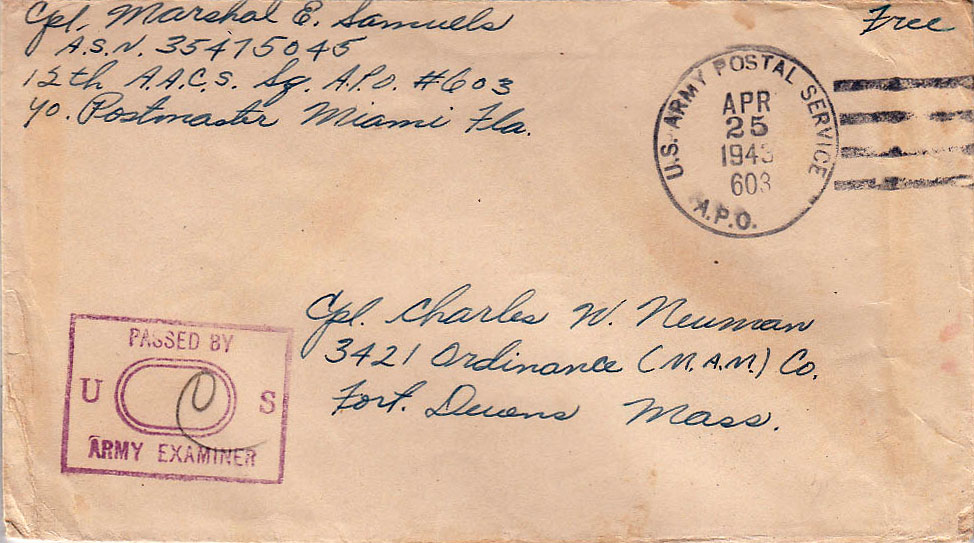 Cpl. Marshal E. Samuels
A.S.N. 35475045
12th A.A.C.S. Sq. A.P.O. #603
c/o. Postmaster Miami Fla.
Free
U.S. ARMY POSTAL SERVICE
APR
25
1943
603
A.P.O.
Cpl. Charles W. Neuman
3421 Ordinance (M.A.M.) Co.
Fort. Devens Mass.
PASSED BY
U S
ARMY EXAMINER